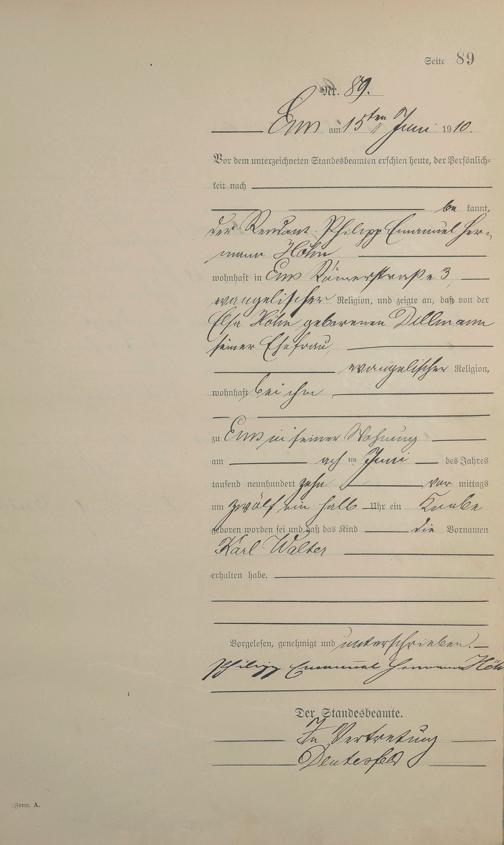 Seite 89
Nr. 89.
Ems am 15ten Juni 1910.
Vor dem unterzeichneten Standesbeamten erschien heute, der Persönlich-
keit nach
be kannt,
der Rendant Philipp Emanuel Her-
mann Höhn
wohnhaft in Ems Römerstraße 3
evangelischer Religion, und zeigte an, daß von der
Elsa Höhn geborenen Dillmann
seiner Ehefrau
evangelischer Religion,
wohnhaft bei ihm
zu Ems in seiner Wohnung
am ten Juni des Jahres
tausend neunhundert zehn vor mittags
um zwölf ein halb Uhr ein Knabe
geboren worden sei und daß das Kind die Vornamen
Karl Walter
erhalten habe.
Vorgelesen, genehmigt und unterschrieben.
Philipp Emanuel Hermann Höhn
Der Standesbeamte.
In Vertretung
Form. A.